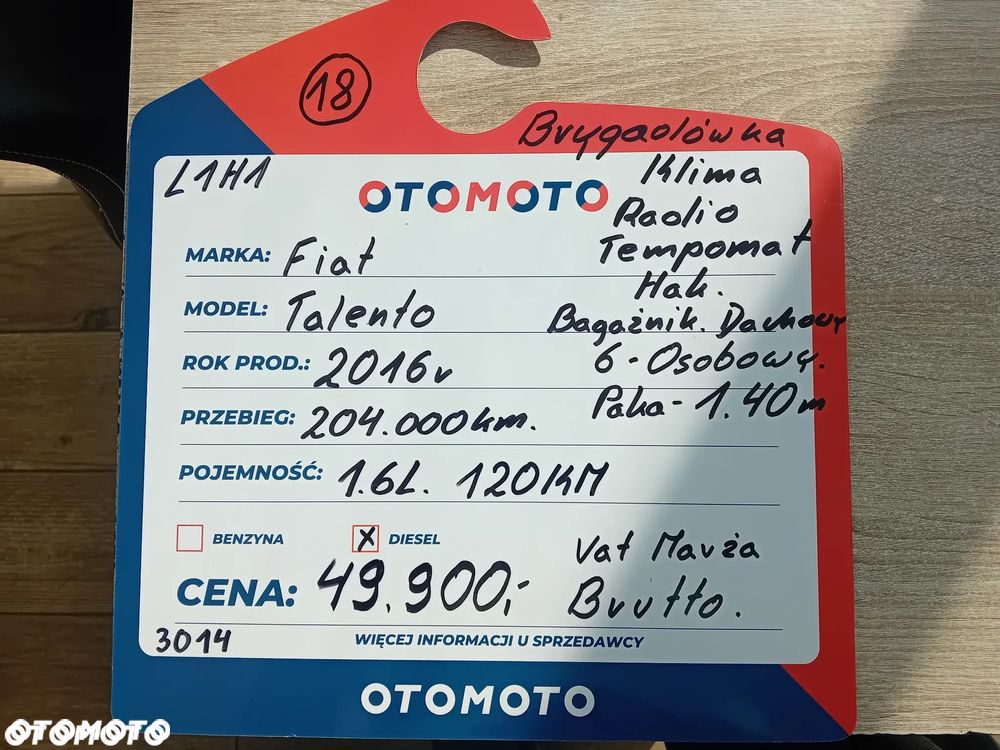 18
Brygadówka
L1H1
Klima
OTOMOTO
Radio
MARKA: Fiat
Tempomat
Hak.
MODEL: Talento
Bagażnik. Dachowy
ROK PROD.: 2016r
6-Osobowy.
PRZEBIEG: 204.000km.
Paka-1.40m
POJEMNOŚĆ: 1.6L. 120KM
BENZYNA X DIESEL
Vat Marża
CENA: 49.900,-
Brutto.
3014
WIĘCEJ INFORMACJI U SPRZEDAWCY
OTOMOTO
OTOMOTO